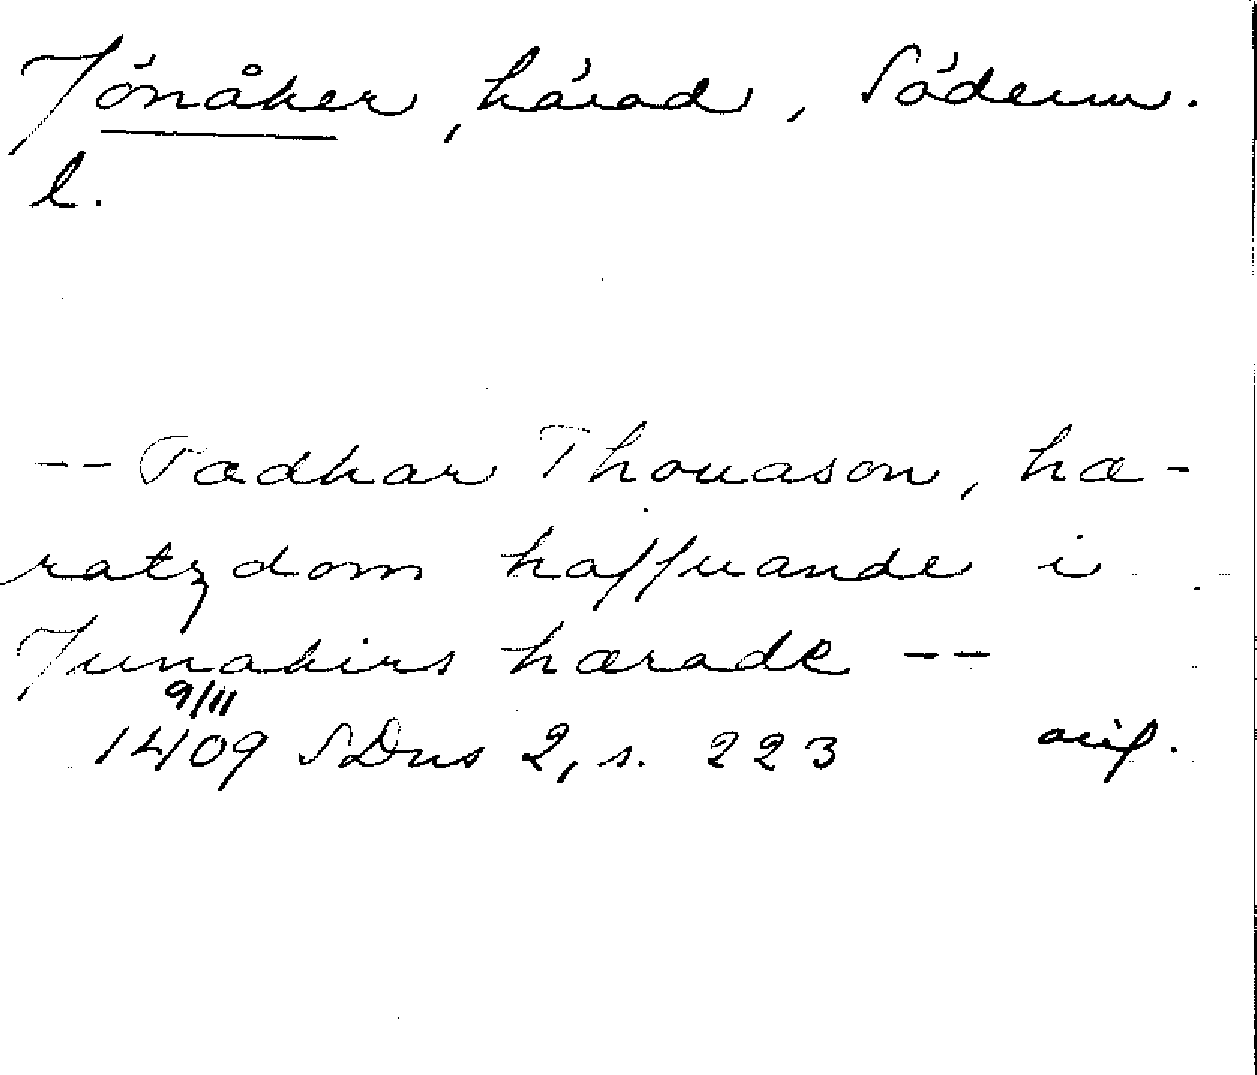 Jönåker, härad, Söderm.
l.
-- Fadhar Thomason, hæ-
ratz dom haffuande i
Junakirs hærade --
9/11
1409 SDns 2, s. 223 orig.